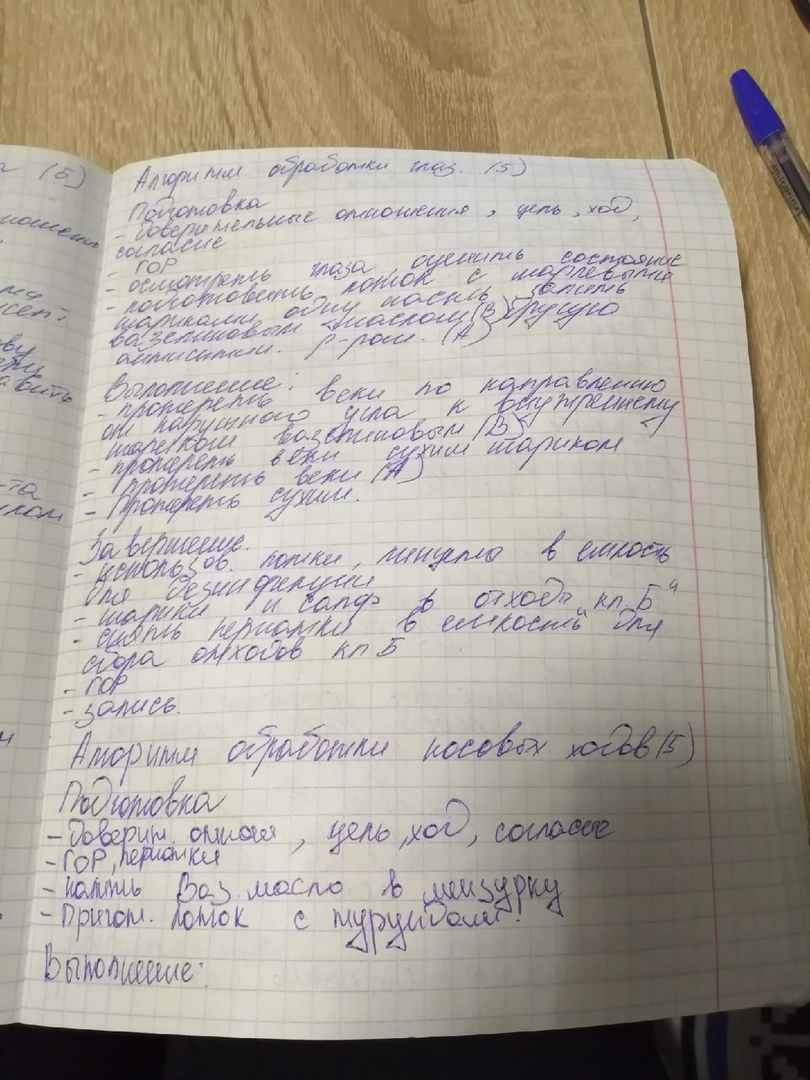 а (5)
ву
авить
та
Алгоритм обработки глаз. (5)
Подготовка
- доверительные отношения, цель, ход,
согласие
- ГОР
- осмотреть глаза, оценить состояние
- подготовить лоток с марлевыми
шариками, одну часть залить
вазелиновым маслом (В) другую
антисептич. р-ром. (А)
Выполнение:
- протереть веки по направлению
от наружного угла к внутреннему
шариком вазелиновым (В)
- протереть веки сухим шариком
- протереть веки (А)
- Протереть сухим.
Завершение.
- использов. лотки, пинцеты в емкость
для дезинфекции
- шарики и салф в отходы кл „Б“
- снять перчатки в емкость для
сбора отходов кл Б
- ГОР
- запись.
Алгоритм обработки носовых ходов (5)
Подготовка
- Доверит. отнош, цель, ход, согласие
- ГОР, перчатки
- налить Ваз. масло в мензурку
- Пригот. лоток с турундами.
Выполнение: